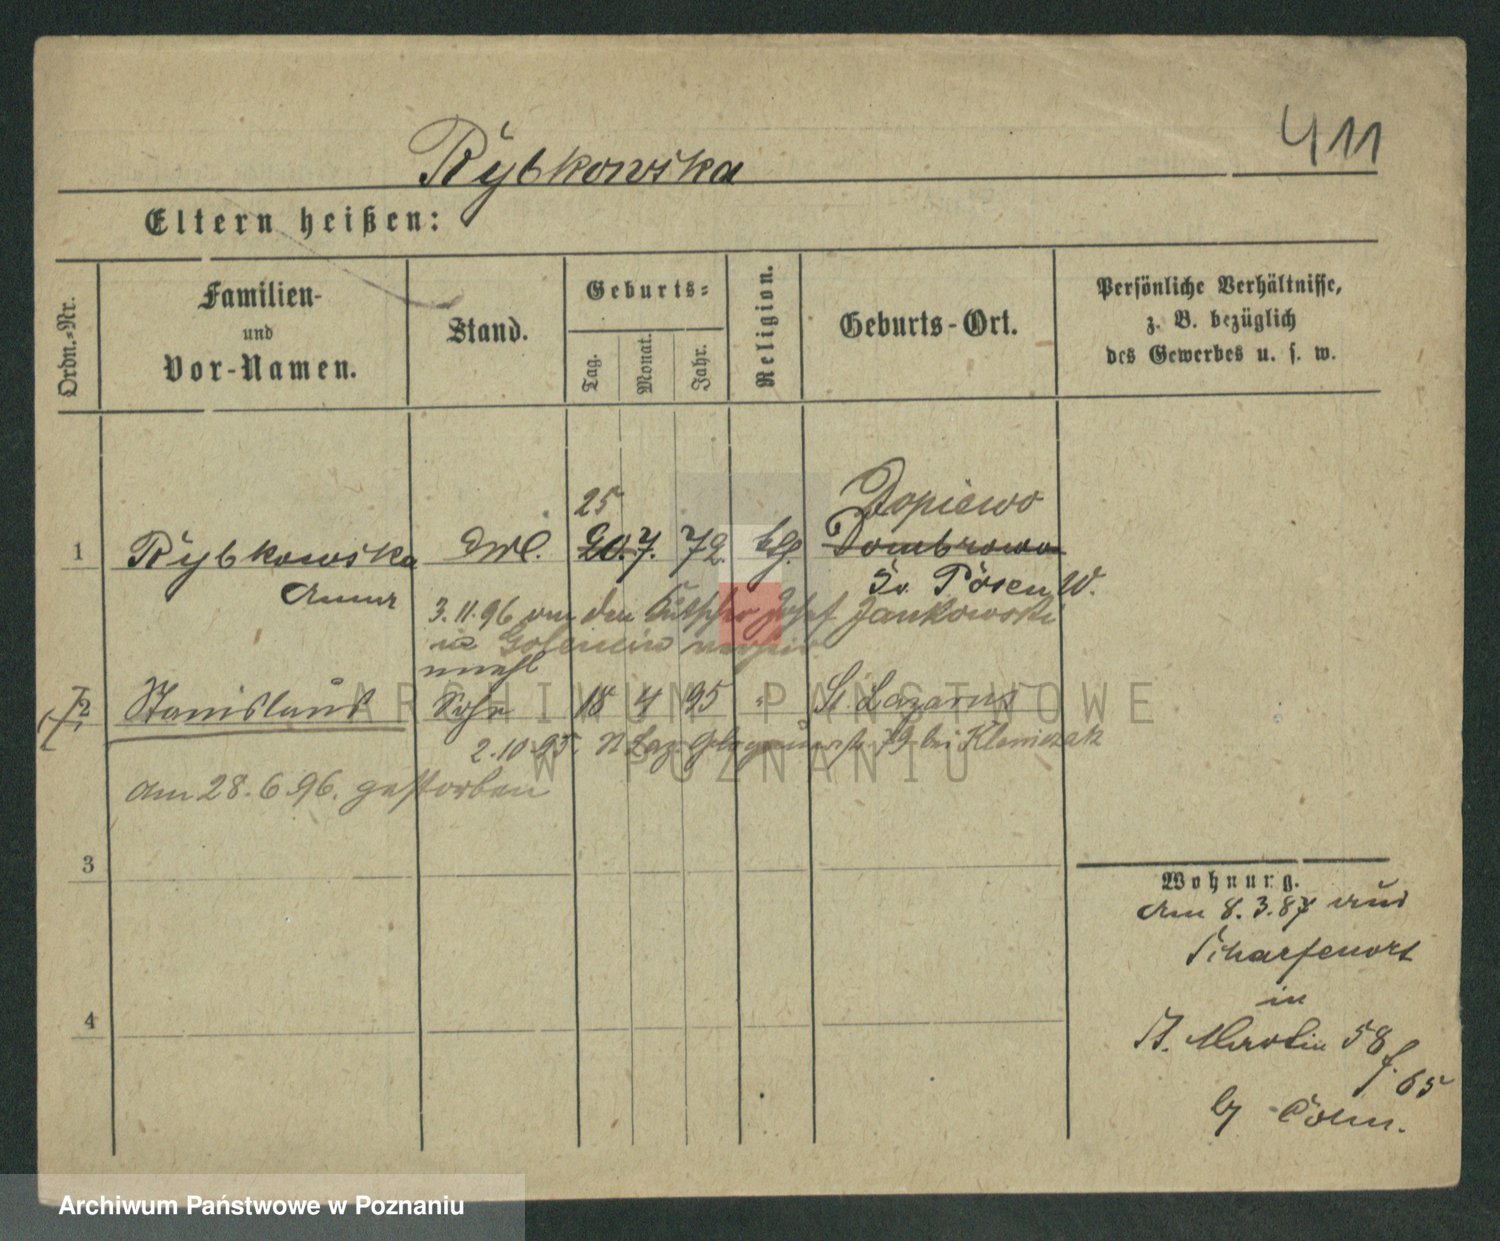 411
Rybkowska
Eltern heißen:
Ordn.-Nr.
Familien-
und
Vor-Namen.
Stand.
Geburts-
Tag.
Monat.
Jahr.
Religion.
Geburts-Ort.
Persönliche Verhältnisse,
z. B. bezüglich
des Gewerbes u. s. w.
25 Dopiewo
1 Rybkowska 20. 7. 72. Dombrowo
Anna Posen W.
3.11.96 Josef Jankowski
in
unehl
2 Stanislaus Sohn 18 4 95 " St. Lazarus
2.10.95. 79 bei Klemczak
am 28.6.96. gestorben
3
4
Wohnung.
Am 8.3.87 aus
Scharfenort
in
St. Martin 58
f. 65
by Cohn.
ARCHIWUM PAŃSTWOWE
W POZNANIU
Archiwum Państwowe w Poznaniu